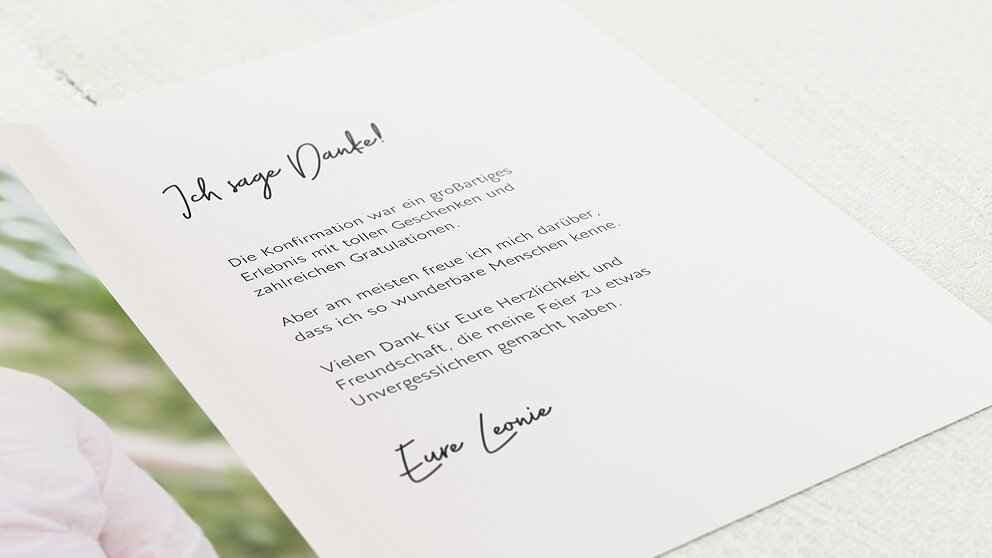 Ich sage Danke!
Die Konfirmation war ein großartiges
Erlebnis mit tollen Geschenken und
zahlreichen Gratulationen.
Aber am meisten freue ich mich darüber,
dass ich so wunderbare Menschen kenne.
Vielen Dank für Eure Herzlichkeit und
Freundschaft, die meine Feier zu etwas
Unvergesslichem gemacht haben.
Eure Leonie